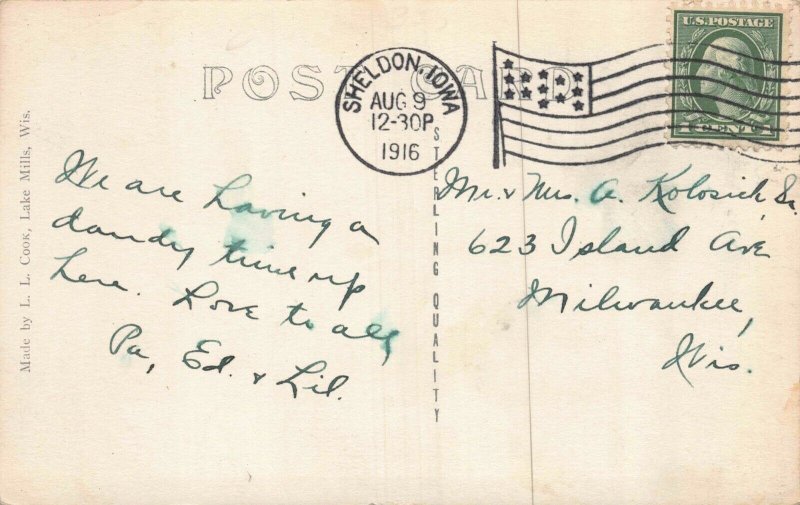 POST CARD
SHELDON, IOWA
AUG 9
12-30P
1916
U.S. POSTAGE
CENT
Made by L. L. Cook, Lake Mills, Wis.
STERLING QUALITY
We are having a
dandy time up
here. Love to all,
Pa, Ed. & Lil.
Mr. & Mrs. A. Kolosick, Sr.
623 Island Ave
Milwaukee,
Wis.